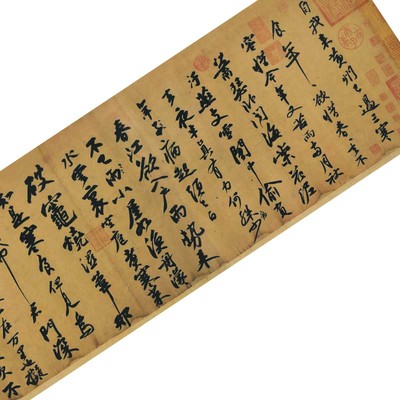 自我來黃州已過三寒
食年〻欲惜春春去不
容惜今年又苦雨兩月秋
蕭瑟卧聞海棠花泥
汙燕支雪闇中偷負
去夜半真有力何殊病少
年子病起頭已白
春江欲入戶雨勢來
不已雨小屋如漁舟濛〻
水雲裏空庖煮寒菜
破竈燒濕葦那
知是寒食但見烏
帋君門深
在万里也擬
吹不